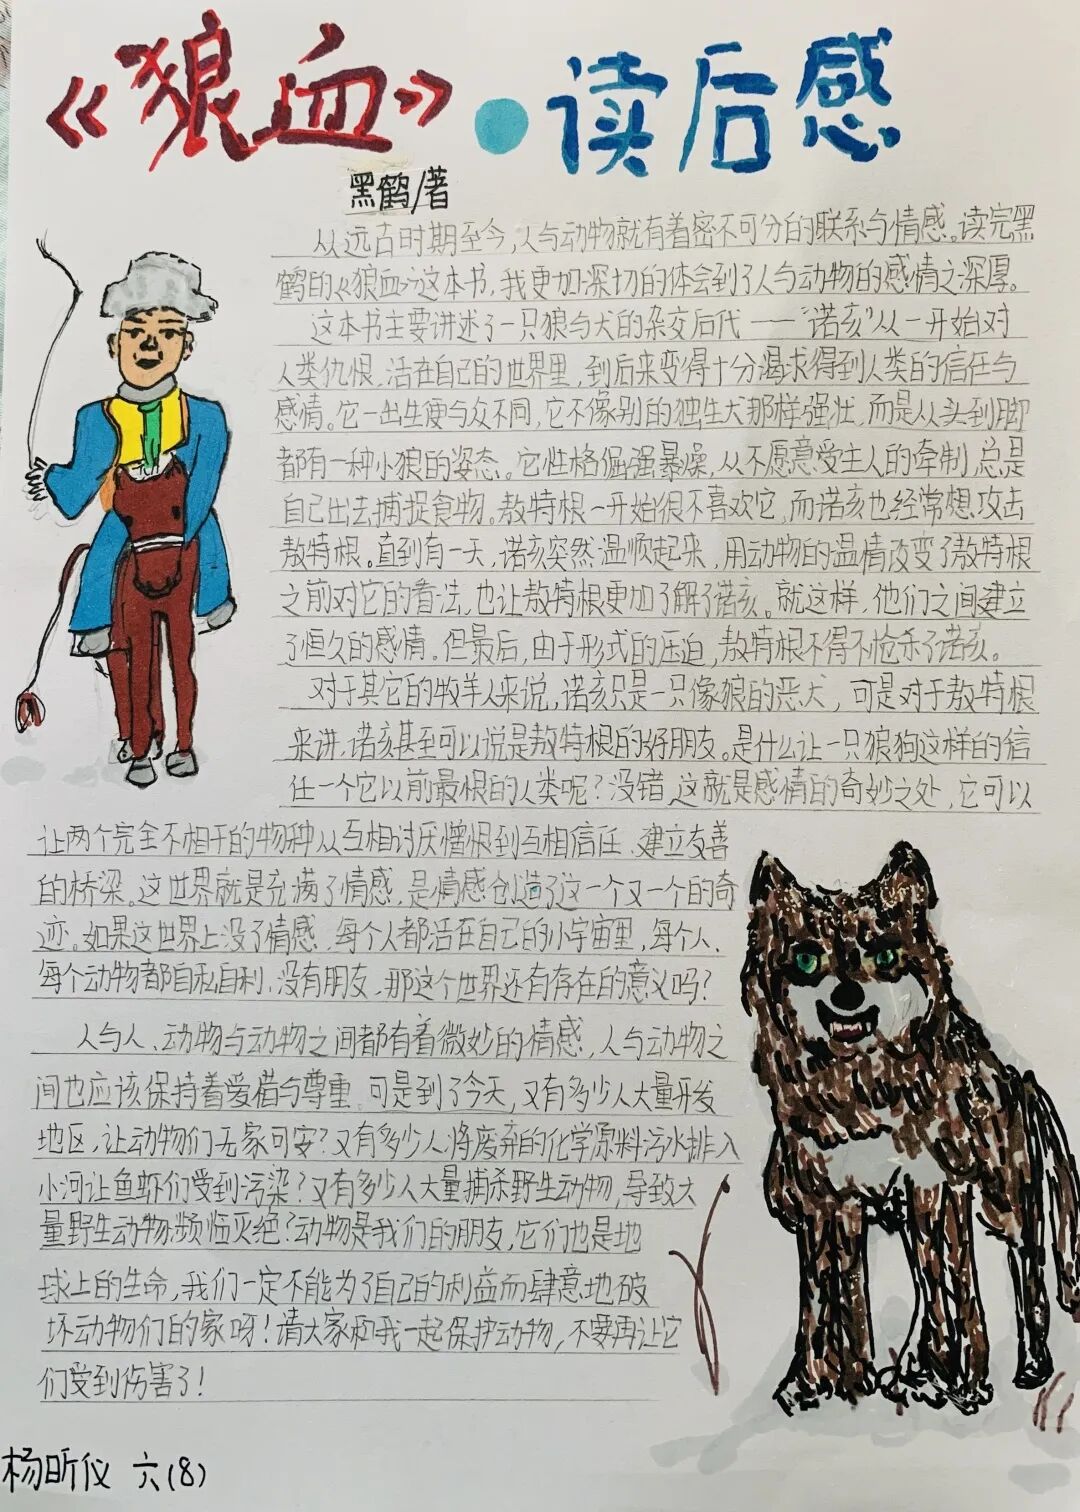 《狼血》·读后感
黑鹤/著
从远古时期至今，人与动物就有着密不可分的联系与情感。读完黑
鹤的《狼血》这本书，我更加深切的体会到了人与动物的感情之深厚。
这本书主要讲述了一只狼与犬的杂交后代——“诺亥”从一开始对
人类仇恨，活在自己的世界里，到后来变得十分渴求得到人类的信任与
感情。它一出生便与众不同，它不像别的独生犬那样强壮，而是从头到脚
都有一种小狼的姿态。它性格倔强暴燥，从不愿意受主人的牵制，总是
自己出去捕捉食物。敖特根一开始很不喜欢它，而诺亥也经常想攻击
敖特根。直到有一天，诺亥突然温顺起来，用动物的温情改变了敖特根
之前对它的看法，也让敖特根更加了解了诺亥。就这样，他们之间建立
了恒久的感情。但最后，由于形式的压迫，敖特根不得不枪杀了诺亥。
对于其它的牧羊人来说，诺亥只是一只像狼的恶犬，可是对于敖特根
来讲，诺亥甚至可以说是敖特根的好朋友。是什么让一只狼狗这样的信
任一个它以前最恨的人类呢？没错，这就是感情的奇妙之处，它可以
让两个完全不相干的物种从互相讨厌憎恨到互相信任、建立友善
的桥梁。这世界就是充满了情感，是情感创造了这一个又一个的奇
迹。如果这世界上没了情感，每个人都活在自己的小宇宙里，每个人、
每个动物都自私自利，没有朋友，那这个世界还有存在的意义吗？
人与人、动物与动物之间都有着微妙的情感，人与动物之
间也应该保持着爱惜与尊重。可是到了今天，又有多少人大量开发
地区，让动物们无家可安？又有多少人将废弃的化学原料污水排入
小河让鱼虾们受到污染？又有多少人大量捕杀野生动物，导致大
量野生动物频临灭绝？动物是我们的朋友，它们也是地
球上的生命，我们一定不能为了自己的利益而肆意地破
坏动物们的家呀！请大家和我一起保护动物，不要再让它
们受到伤害了！
杨昕仪 六(8)